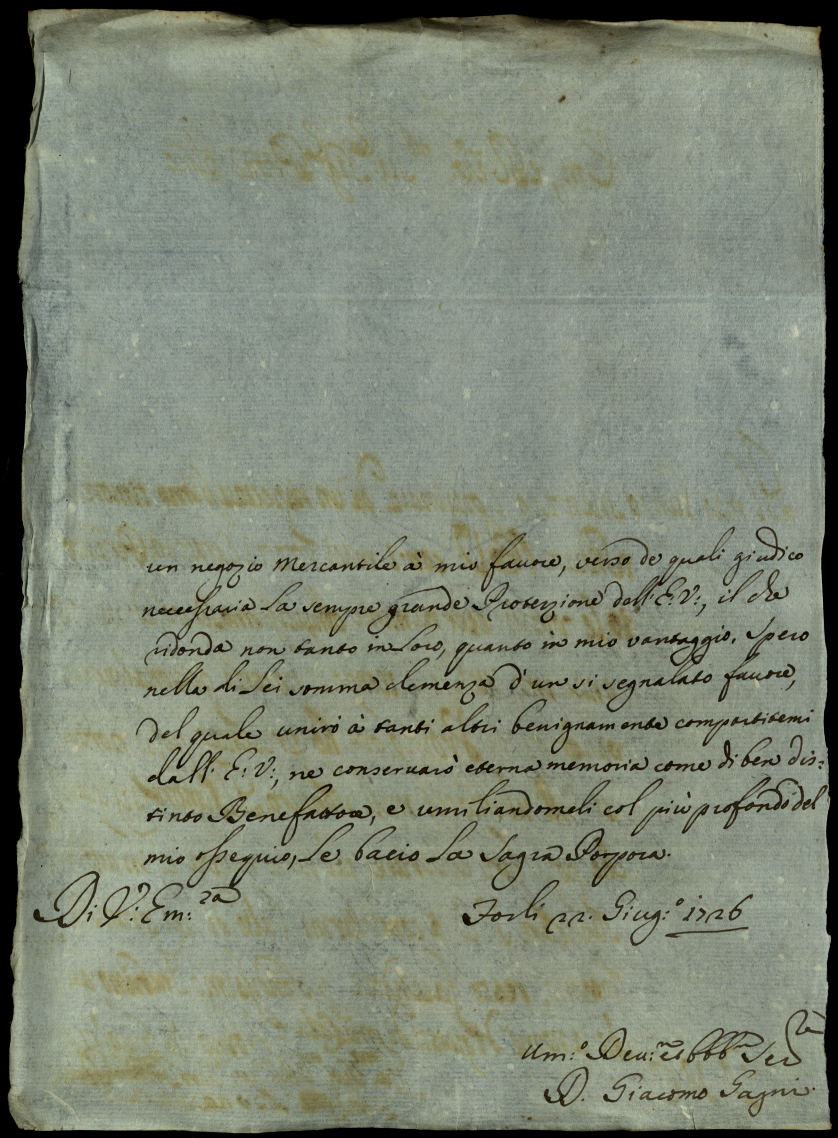 un negozio Mercantile à mio fauore, verso de quali giudico
necessaria La sempre grande Protezzione dell'E:V:, il che
ridonda non tanto in Loro, quanto in mio vantaggio. Spero
nella di Lei somma clemenza d'un si segnalato fauore,
del quale unirò à tanti altri benignamente compartitemi
dall'E:V:, ne conseruarò eterna memoria come di ben dis:
tinto Benefattore, e umiliandomeli col più profondo del
mio ossequio, Le bacio La Sagra Porpora.
Di V: Em:za
Forlì 22. Giug:o 1726
Um:o Deu: et Obbb Ser
D. Giacomo